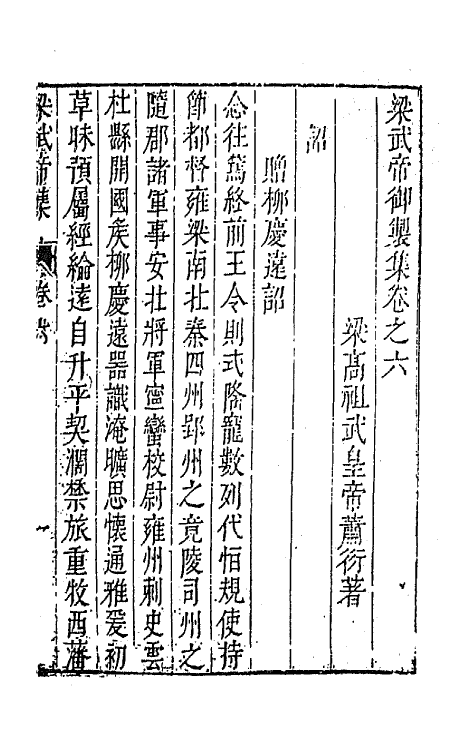 梁武帝御製集卷之六
梁髙祖武皇帝蕭衍著
詔
贈柳慶遠詔
念往篤終前王令則式隆寵數列代恒規使持
節都督雍梁南北秦四州郢州之竟陵司州之
隨郡諸軍事安北將軍寧蠻校尉雍州刺史雲
杜縣開國矦柳慶遠器識淹曠思懷通雅爰初
草昧預屬經綸遠自升平契濶禁旅重牧西藩
梁武帝集
卷六
一